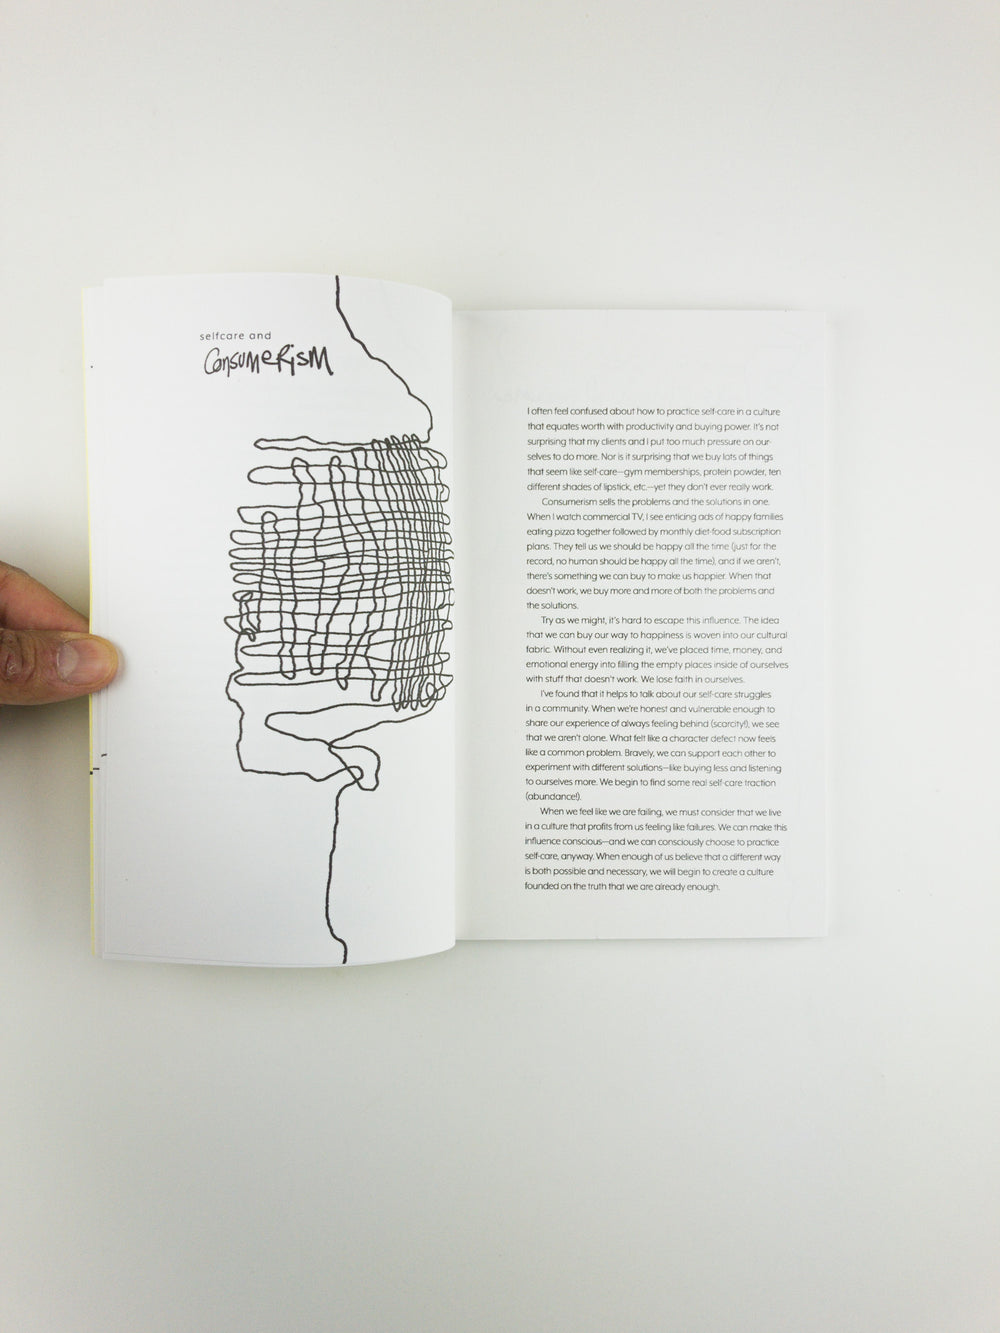 selfcare and
ConsumeRisM
I often feel confused about how to practice self-care in a culture
that equates worth with productivity and buying power. It's not
surprising that my clients and I put too much pressure on our-
selves to do more. Nor is it surprising that we buy lots of things
that seem like self-care—gym memberships, protein powder, ten
different shades of lipstick, etc.—yet they don't ever really work.
Consumerism sells the problems and the solutions in one.
When I watch commercial TV, I see enticing ads of happy families
eating pizza together followed by monthly diet-food subscription
plans. They tell us we should be happy all the time (just for the
record, no human should be happy all the time), and if we aren't,
there's something we can buy to make us happier. When that
doesn't work, we buy more and more of both the problems and
the solutions.
Try as we might, it's hard to escape this influence. The idea
that we can buy our way to happiness is woven into our cultural
fabric. Without even realizing it, we've placed time, money, and
emotional energy into filling the empty places inside of ourselves
with stuff that doesn't work. We lose faith in ourselves.
I've found that it helps to talk about our self-care struggles
in a community. When we're honest and vulnerable enough to
share our experience of always feeling behind (scarcity!), we see
that we aren't alone. What felt like a character defect now feels
like a common problem. Bravely, we can support each other to
experiment with different solutions—like buying less and listening
to ourselves more. We begin to find some real self-care traction
(abundance!).
When we feel like we are failing, we must consider that we live
in a culture that profits from us feeling like failures. We can make this
influence conscious—and we can consciously choose to practice
self-care, anyway. When enough of us believe that a different way
is both possible and necessary, we will begin to create a culture
founded on the truth that we are already enough.